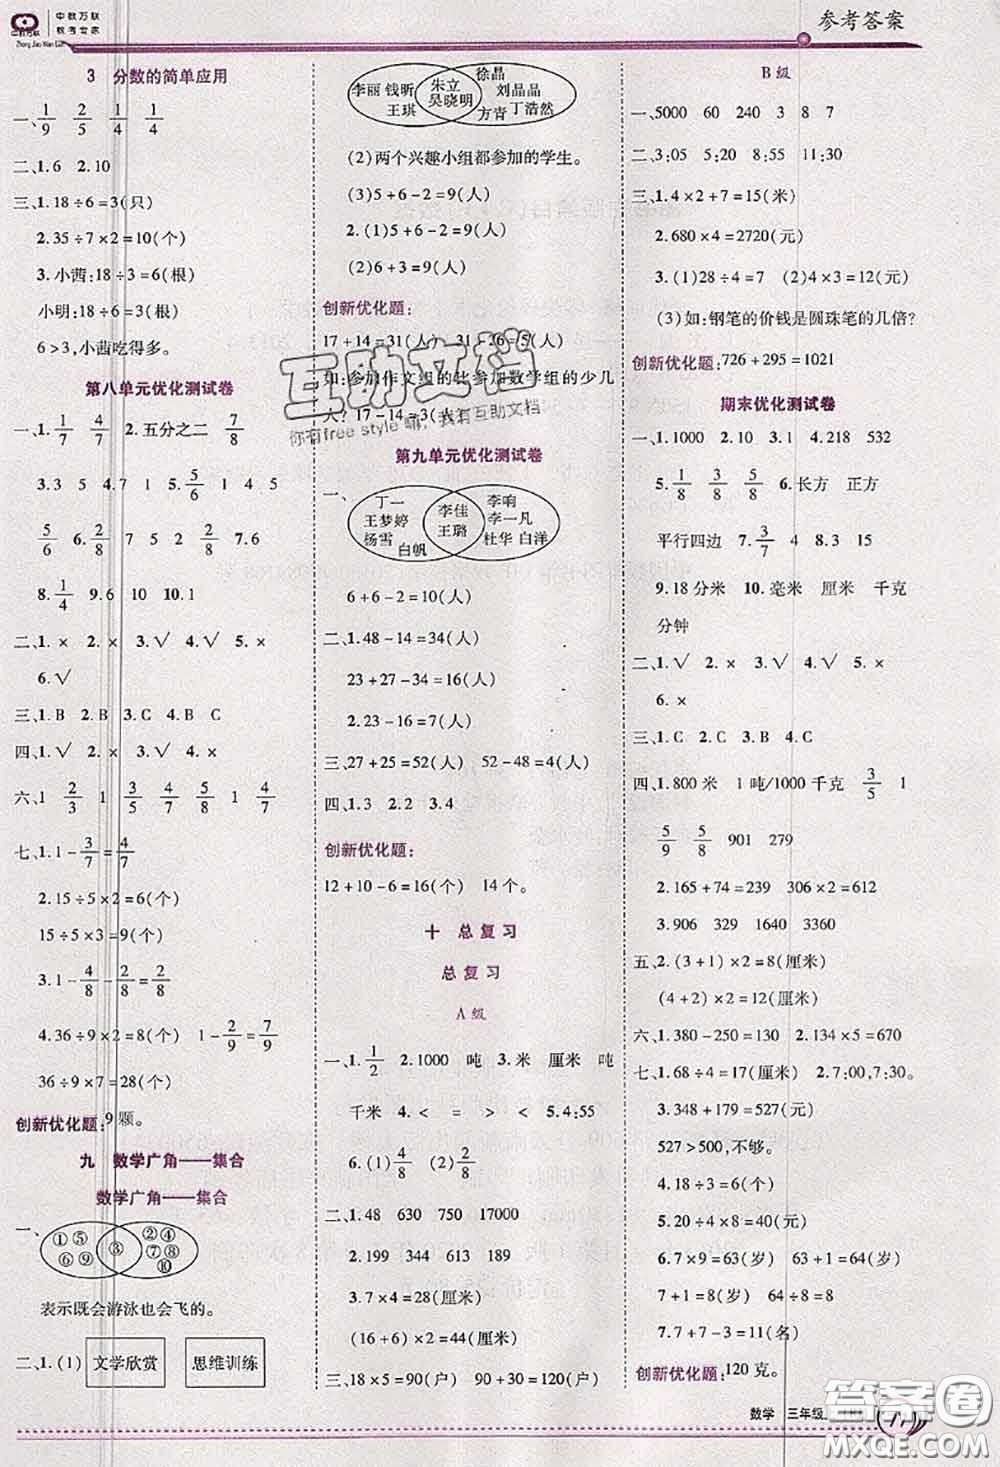 中教万联
教考专家
中教万联
Zhong Jiao Wan Lian
参考答案
3 分数的简单应用
一、1/9 2/5 1/4 1/4
二、1.6 2.10
三、1.18÷6=3(只)
2.35÷7×2=10(个)
3.小茜:18÷3=6(根)
小明:18÷6=3(根)
6>3,小茜吃得多。
第八单元优化测试卷
一、1.1/7 4/7 2.五分之二 7/8
3.3 5 4.7 1 5.5/6 1 4 5
5/6 6.2/8 7 5 2 7.6
8.1/4 9.6 10 10.1
二、1.× 2.× 3.√ 4.√ 5.×
6.√
三、1.B 2.B 3.C 4.B C
四、1.√ 2.× 3.√ 4.×
六、1 2/3 1 3/5 4/7 5/8 1 4/7
七、1.1-3/7=4/7
2.15÷5×2=6(个)
15÷5×3=9(个)
3.1-4/8-2/8=2/8
4.36÷9×2=8(个) 1-2/9=7/9
36÷9×7=28(个)
创新优化题:9颗。
九 数学广角——集合
数学广角——集合
一、
①⑤
⑥⑨
③
②④
⑦⑧
⑩
表示既会游泳也会飞的。
二、1.(1) 文学欣赏 思维训练
李丽 钱昕
王琪
朱立
吴晓明
徐晶
刘晶晶
方青 丁浩然
(2)两个兴趣小组都参加的学生。
(3)5+6-2=9(人)
2.(1)5+6-2=9(人)
(2)6+3=9(人)
创新优化题:
17+14=31(人) 31-26=5(人)
如:参加作文组的比参加数学组的少几
人? 17-14=3(人)
互助文档
你有free style嘛,我有互助文档
第九单元优化测试卷
一、
丁一
王梦婷
杨雪
白帆
李佳
王璐
李响
李一凡
杜华 白洋
6+6-2=10(人)
二、1.48-14=34(人)
23+27-34=16(人)
2.23-16=7(人)
三、27+25=52(人) 52-48=4(人)
四、1.3 2.2 3.4
创新优化题:
12+10-6=16(个) 14个。
十 总复习
总复习
A级
一、1.1/2 2.1000 吨 3.米 厘米 吨
千米 4.< = > < 5.4:55
6.(1)4/8 (2)2/8
二、1.48 630 750 17000
2.199 344 613 189
3.7×4=28(厘米)
(16+6)×2=44(厘米)
三、18×5=90(户) 90+30=120(户)
B级
一、5000 60 240 3 8 7
二、3:05 5:20 8:55 11:30
三、1.4×2+7=15(米)
2.680×4=2720(元)
3.(1)28÷4=7 (2)4×3=12(元)
(3)如:钢笔的价钱是圆珠笔的几倍?
创新优化题:726+295=1021
期末优化测试卷
一、1.1000 2.10 3.1 4.218 532
5.1/8 3/8 5/8 6.长方 正方
平行四边 7.3/7 4 8.3 15
9.18分米 10.毫米 厘米 千克
分钟
二、1.√ 2.× 3.× 4.√ 5.√
6.×
三、1.C 2.B 3.B 4.C
四、1.800米 1吨/1000千克 3/5 1
5/9 5/8 901 279
2.165+74=239 306×2=612
3.906 329 1505
五、2.(3+1)×2=8(厘米)
(4+2)×2=12(厘米)
六、1.380-250=130 2.134×5=670
七、1.68÷4=17(厘米) 2.7:00,7:30。
3.348+179=527(元)
527>500,不够。
4.18÷3=6(个)
5.20÷4×5=25(元)
6.7×9=63(岁) 63+1=64(岁)
7+1=8(岁) 64÷8=8
7.7+7-3=11(名)
创新优化题:120克。
数学 三年级
答案圈
MXQE.COM